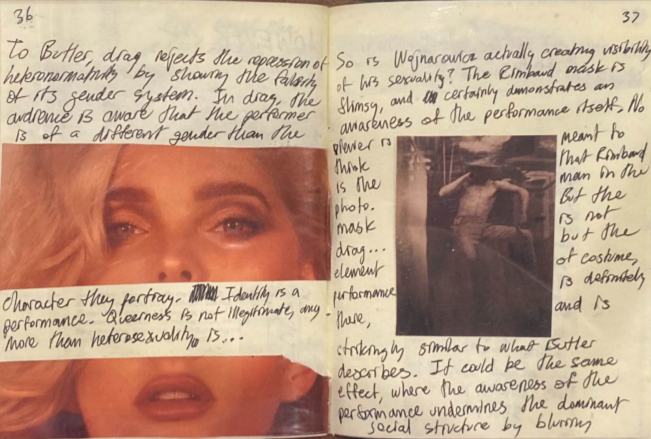 36
To Butler, drag rejects the repression of
heteronormativity by showing the falsity
of its gender system. In drag, the
audience is aware that the performer
is of a different gender than the
character they portray. Identity is a
performance. Queerness is not illegitimate, any-
more than heterosexuality is...
37
So is Wojnarowicz actually creating visibility
of his sexuality? The Rimbaud mask is
flimsy, and certainly demonstrates an
awareness of the performance itself. No
viewer is meant to
think that Rimbaud
is the man in the
photo. But the
mask is not
drag... but the
element of costume,
performance is definitely
there, and is
strikingly similar to what Butler
describes. It could be the same
effect, where the awareness of the
performance undermines the dominant
social structure by blurring